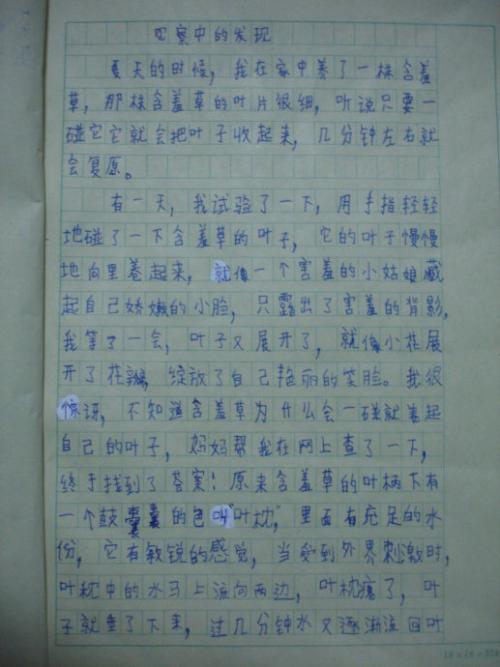 观察中的发现
夏天的时候，我在家中养了一株含羞
草，那株含羞草的叶片很细，听说只要一
碰它它就会把叶子收起来，几分钟左右就
会复原。
有一天，我试验了一下，用手指轻轻
地碰了一下含羞草的叶子，它的叶子慢慢
地向里卷起来，就像一个害羞的小姑娘藏
起自己娇嫩的小脸，只露出了害羞的背影，
我等了一会，叶子又展开了，就像小花展
开了花瓣，绽放了自己艳丽的笑脸。我很
惊讶，不知道含羞草为什么会一碰就卷起
自己的叶子，妈妈帮我在网上查了一下，
终于找到了答案！原来含羞草的叶柄下有
一个鼓囊囊的包叫“叶枕”，里面有充足的水
份，它有敏锐的感觉，当受到外界刺激时，
叶枕中的水马上流向两边，叶枕瘪了，叶
子就垂了下来，过几分钟水又逐渐流回叶